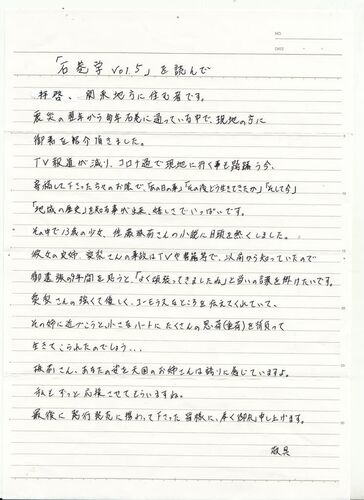 NO.
DATE
「石巻学vol.5」を読んで
拝啓、関東地方に住む者です。
震災の翌年から毎年石巻に通っている中で、現地の方に
御本を紹介頂きました。
TV報道が減り、コロナ過で現地に行く事も躊躇う今、
寄稿して下さった方々のお陰で、「あの日の事」「その後どう生きてきたか」「そして今」
「地域の歴史」を知る事が出来、嬉しさでいっぱいです。
その中で13歳の少女、佐藤珠莉さんの小説に目頭を熱くしました。
彼女の実姉、愛梨さんの事故はTVや書籍等で、以前から知っていたので
御遺族の9年間を思うと、「よく頑張ってきましたね」と労いの言葉を掛けたいです。
愛梨さんの強くて優しく、ユーモラスなところを伝えてくれていて、
その姉に近づこうと、小さなハートにたくさんの思荷(重荷)を背負って
生きてこられたのでしょう・・・
珠莉さん、あなたの姿を天国のお姉さんは誇りに感じていますよ。
私もずっと応援させてもらいますね。
最後に発行発売に携わって下さった皆様に、厚く御礼申し上げます。
敬具